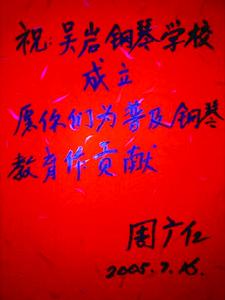 祝:吴岩钢琴学校
成立
愿你们为普及钢琴
教育作贡献
周广仁
2005.7.15.